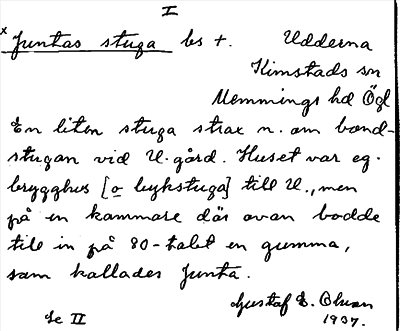 I
x Juntas stuga bs +. Udderna
Kimstads sn
Memmings hd Ögl
En liten stuga strax n. om band-
stugan vid U. gård. Huset var eg.
brygghus [o bykstuga] till U., men
på en kammare där ovan bodde
till in på 80-talet en gumma,
som kallades Junta.
Gustaf E. Ohlson
Se II 1937.